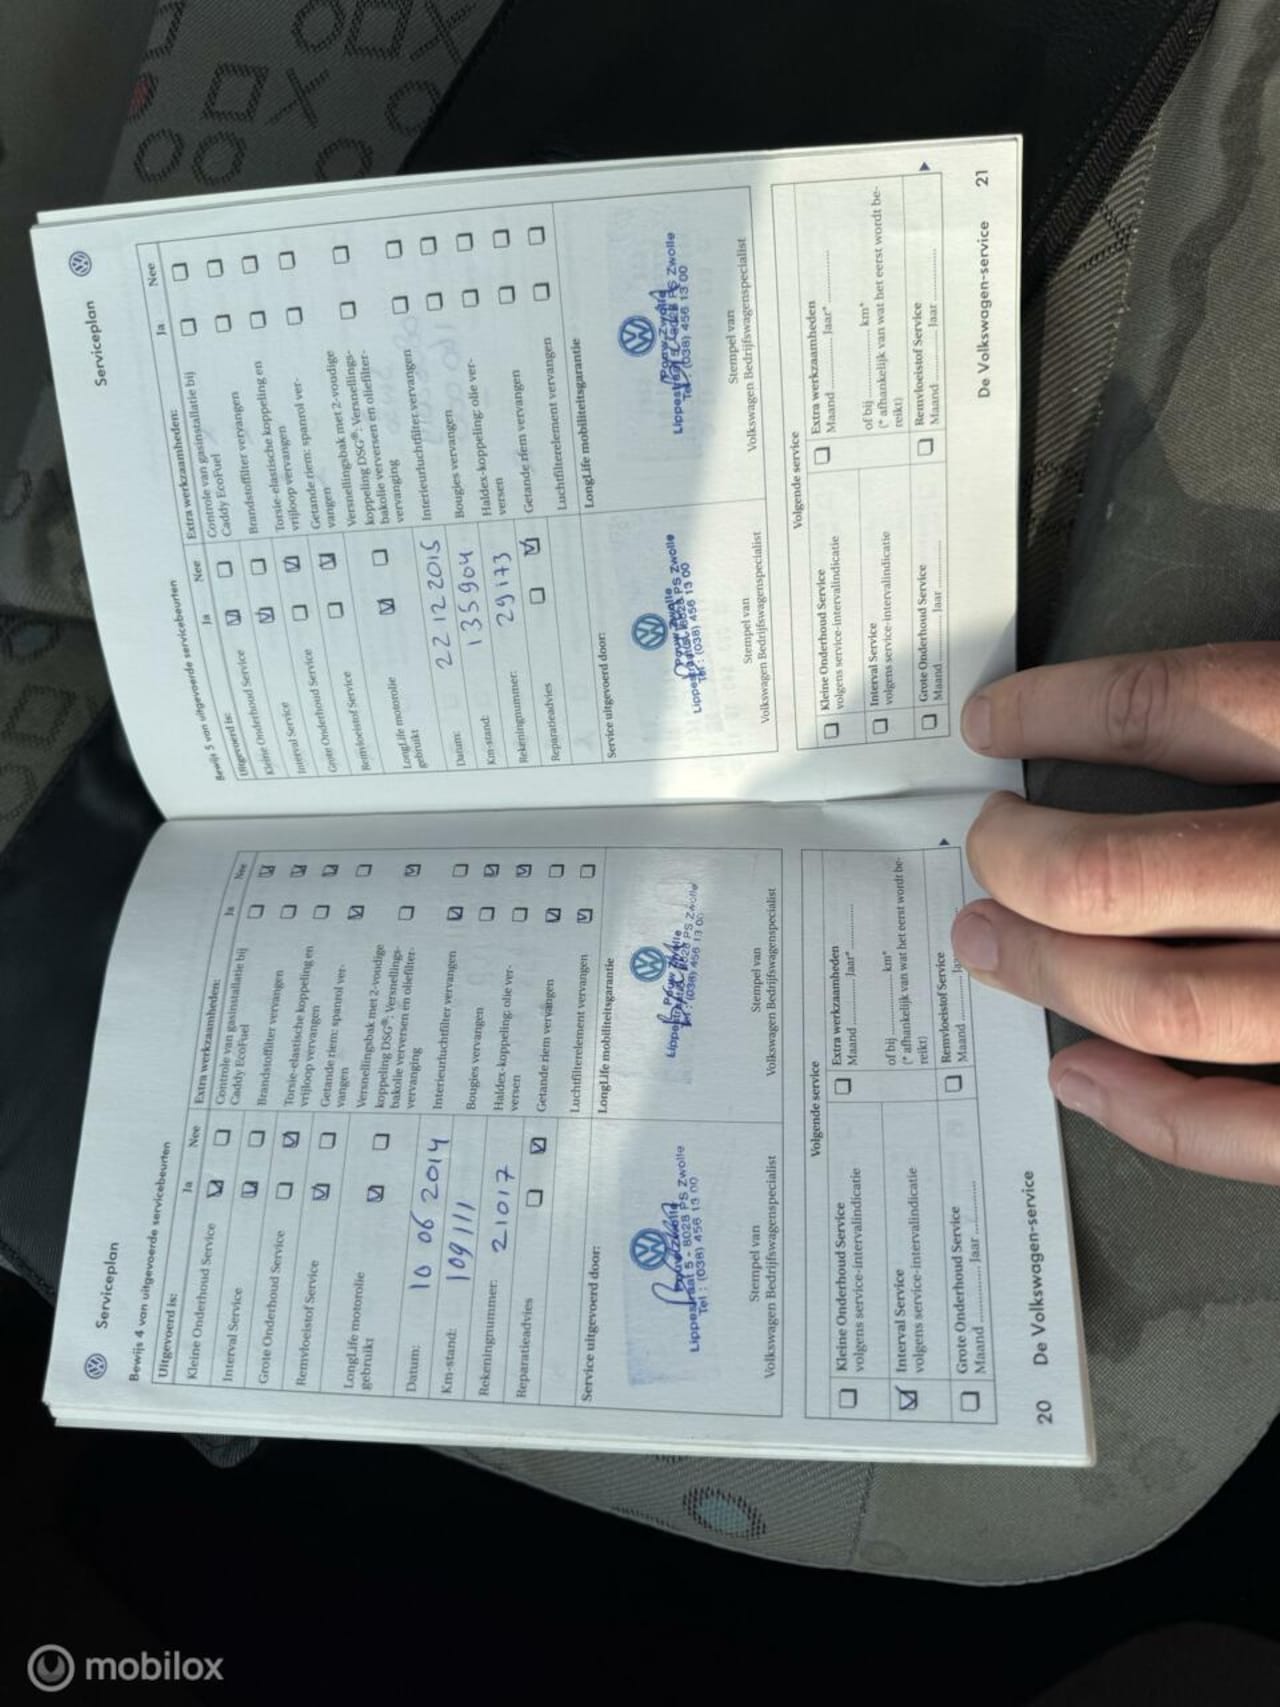 Serviceplan
Bewijs 4 van uitgevoerde servicebeurten
Uitgevoerd is: Ja Nee
Kleine Onderhoud Service
Interval Service
Grote Onderhoud Service
Remvloeistof Service
LongLife motorolie
gebruikt
Datum: 10 06 2014
Km-stand: 109111
Rekeningnummer: 21017
Reparatieadvies
Extra werkzaamheden: Ja Nee
Controle van gasinstallatie bij
Caddy EcoFuel
Brandstoffilter vervangen
Torsie-elastische koppeling en
vrijloop vervangen
Getande riem: spanrol ver-
vangen
Versnellingsbak met 2-voudige
koppeling DSG®: Versnellings-
bakolie verversen en oliefilter-
vervanging
Interieurluchtfilter vervangen
Bougies vervangen
Haldex-koppeling: olie ver-
versen
Getande riem vervangen
Luchtfilterelement vervangen
Service uitgevoerd door:
Pouw Zwolle
Lippestraat 5 - 8028 PS Zwolle
Tel : (038) 456 13 00
Stempel van
Volkswagen Bedrijfswagenspecialist
LongLife mobiliteitsgarantie
Pouw Zwolle
Lippestraat 5 - 8028 PS Zwolle
Tel : (038) 456 13 00
Stempel van
Volkswagen Bedrijfswagenspecialist
Volgende service
Kleine Onderhoud Service
volgens service-intervalindicatie
Interval Service
volgens service-intervalindicatie
Grote Onderhoud Service
Maand .......... Jaar ..........
Extra werkzaamheden
Maand .......... Jaar* ..........
of bij .......... km*
(* afhankelijk van wat het eerst wordt be-
reikt)
Remvloeistof Service
Maand ..........
20 De Volkswagen-service
Serviceplan
Bewijs 5 van uitgevoerde servicebeurten
Uitgevoerd is: Ja Nee
Kleine Onderhoud Service
Interval Service
Grote Onderhoud Service
Remvloeistof Service
LongLife motorolie
gebruikt
Datum: 22 12 2015
Km-stand: 135904
Rekeningnummer: 29173
Reparatieadvies
Extra werkzaamheden: Ja Nee
Controle van gasinstallatie bij
Caddy EcoFuel
Brandstoffilter vervangen
Torsie-elastische koppeling en
vrijloop vervangen
Getande riem: spanrol ver-
vangen
Versnellingsbak met 2-voudige
koppeling DSG®: Versnellings-
bakolie verversen en oliefilter-
vervanging
Interieurluchtfilter vervangen
Bougies vervangen
Haldex-koppeling: olie ver-
versen
Getande riem vervangen
Luchtfilterelement vervangen
Service uitgevoerd door:
Pouw Zwolle
Lippestraat 5 - 8028 PS Zwolle
Tel : (038) 456 13 00
Stempel van
Volkswagen Bedrijfswagenspecialist
LongLife mobiliteitsgarantie
Pouw Zwolle
Lippestraat 5 - 8028 PS Zwolle
Tel : (038) 456 13 00
Stempel van
Volkswagen Bedrijfswagenspecialist
Volgende service
Kleine Onderhoud Service
volgens service-intervalindicatie
Interval Service
volgens service-intervalindicatie
Grote Onderhoud Service
Maand .......... Jaar ..........
Extra werkzaamheden
Maand .......... Jaar* ..........
of bij .......... km*
(* afhankelijk van wat het eerst wordt be-
reikt)
Remvloeistof Service
Maand .......... Jaar ..........
De Volkswagen-service 21
mobilox